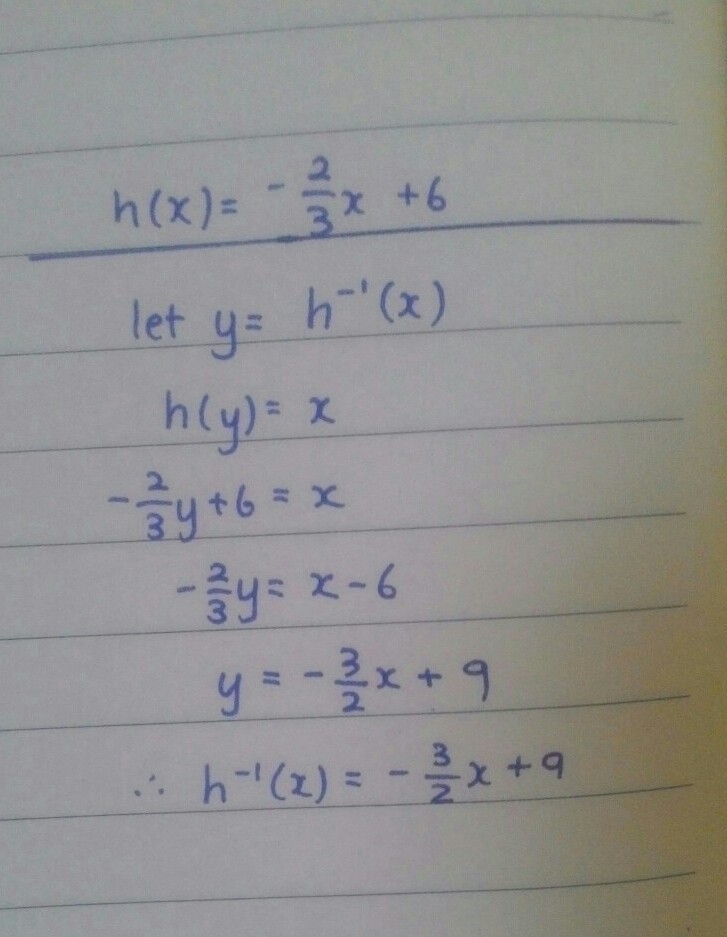 h(x) = -2/3 x + 6
let y = h⁻¹(x)
h(y) = x
-2/3 y + 6 = x
-2/3 y = x - 6
y = -3/2 x + 9
∴ h⁻¹(x) = -3/2 x + 9